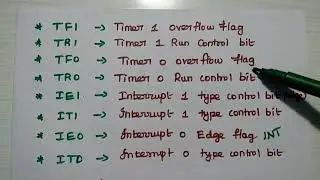 * TF1 → Timer 1 overflow flag
* TR1 → Timer 1 Run control bit
* TF0 → Timer 0 overflow flag
* TR0 → Timer 0 Run control bit
* IE1 → Interrupt 1 type control bit
* IT1 → Interrupt 1 type control bit
* IE0 → Interrupt 0 Edge flag INT
* IT0 → Interrupt 0 type control bit